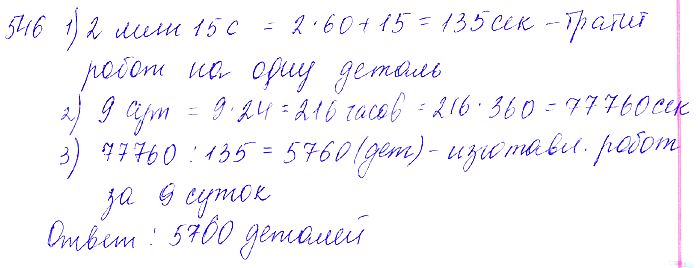 546 1) 2 мин 15 с = 2·60+15 = 135 сек – тратит
робот на одну деталь
2) 9 сут = 9·24 = 216 часов = 216·360 = 77760 сек
3) 77760 : 135 = 5760 (дет) – изготавл. робот
за 9 суток
Ответ : 5700 деталей